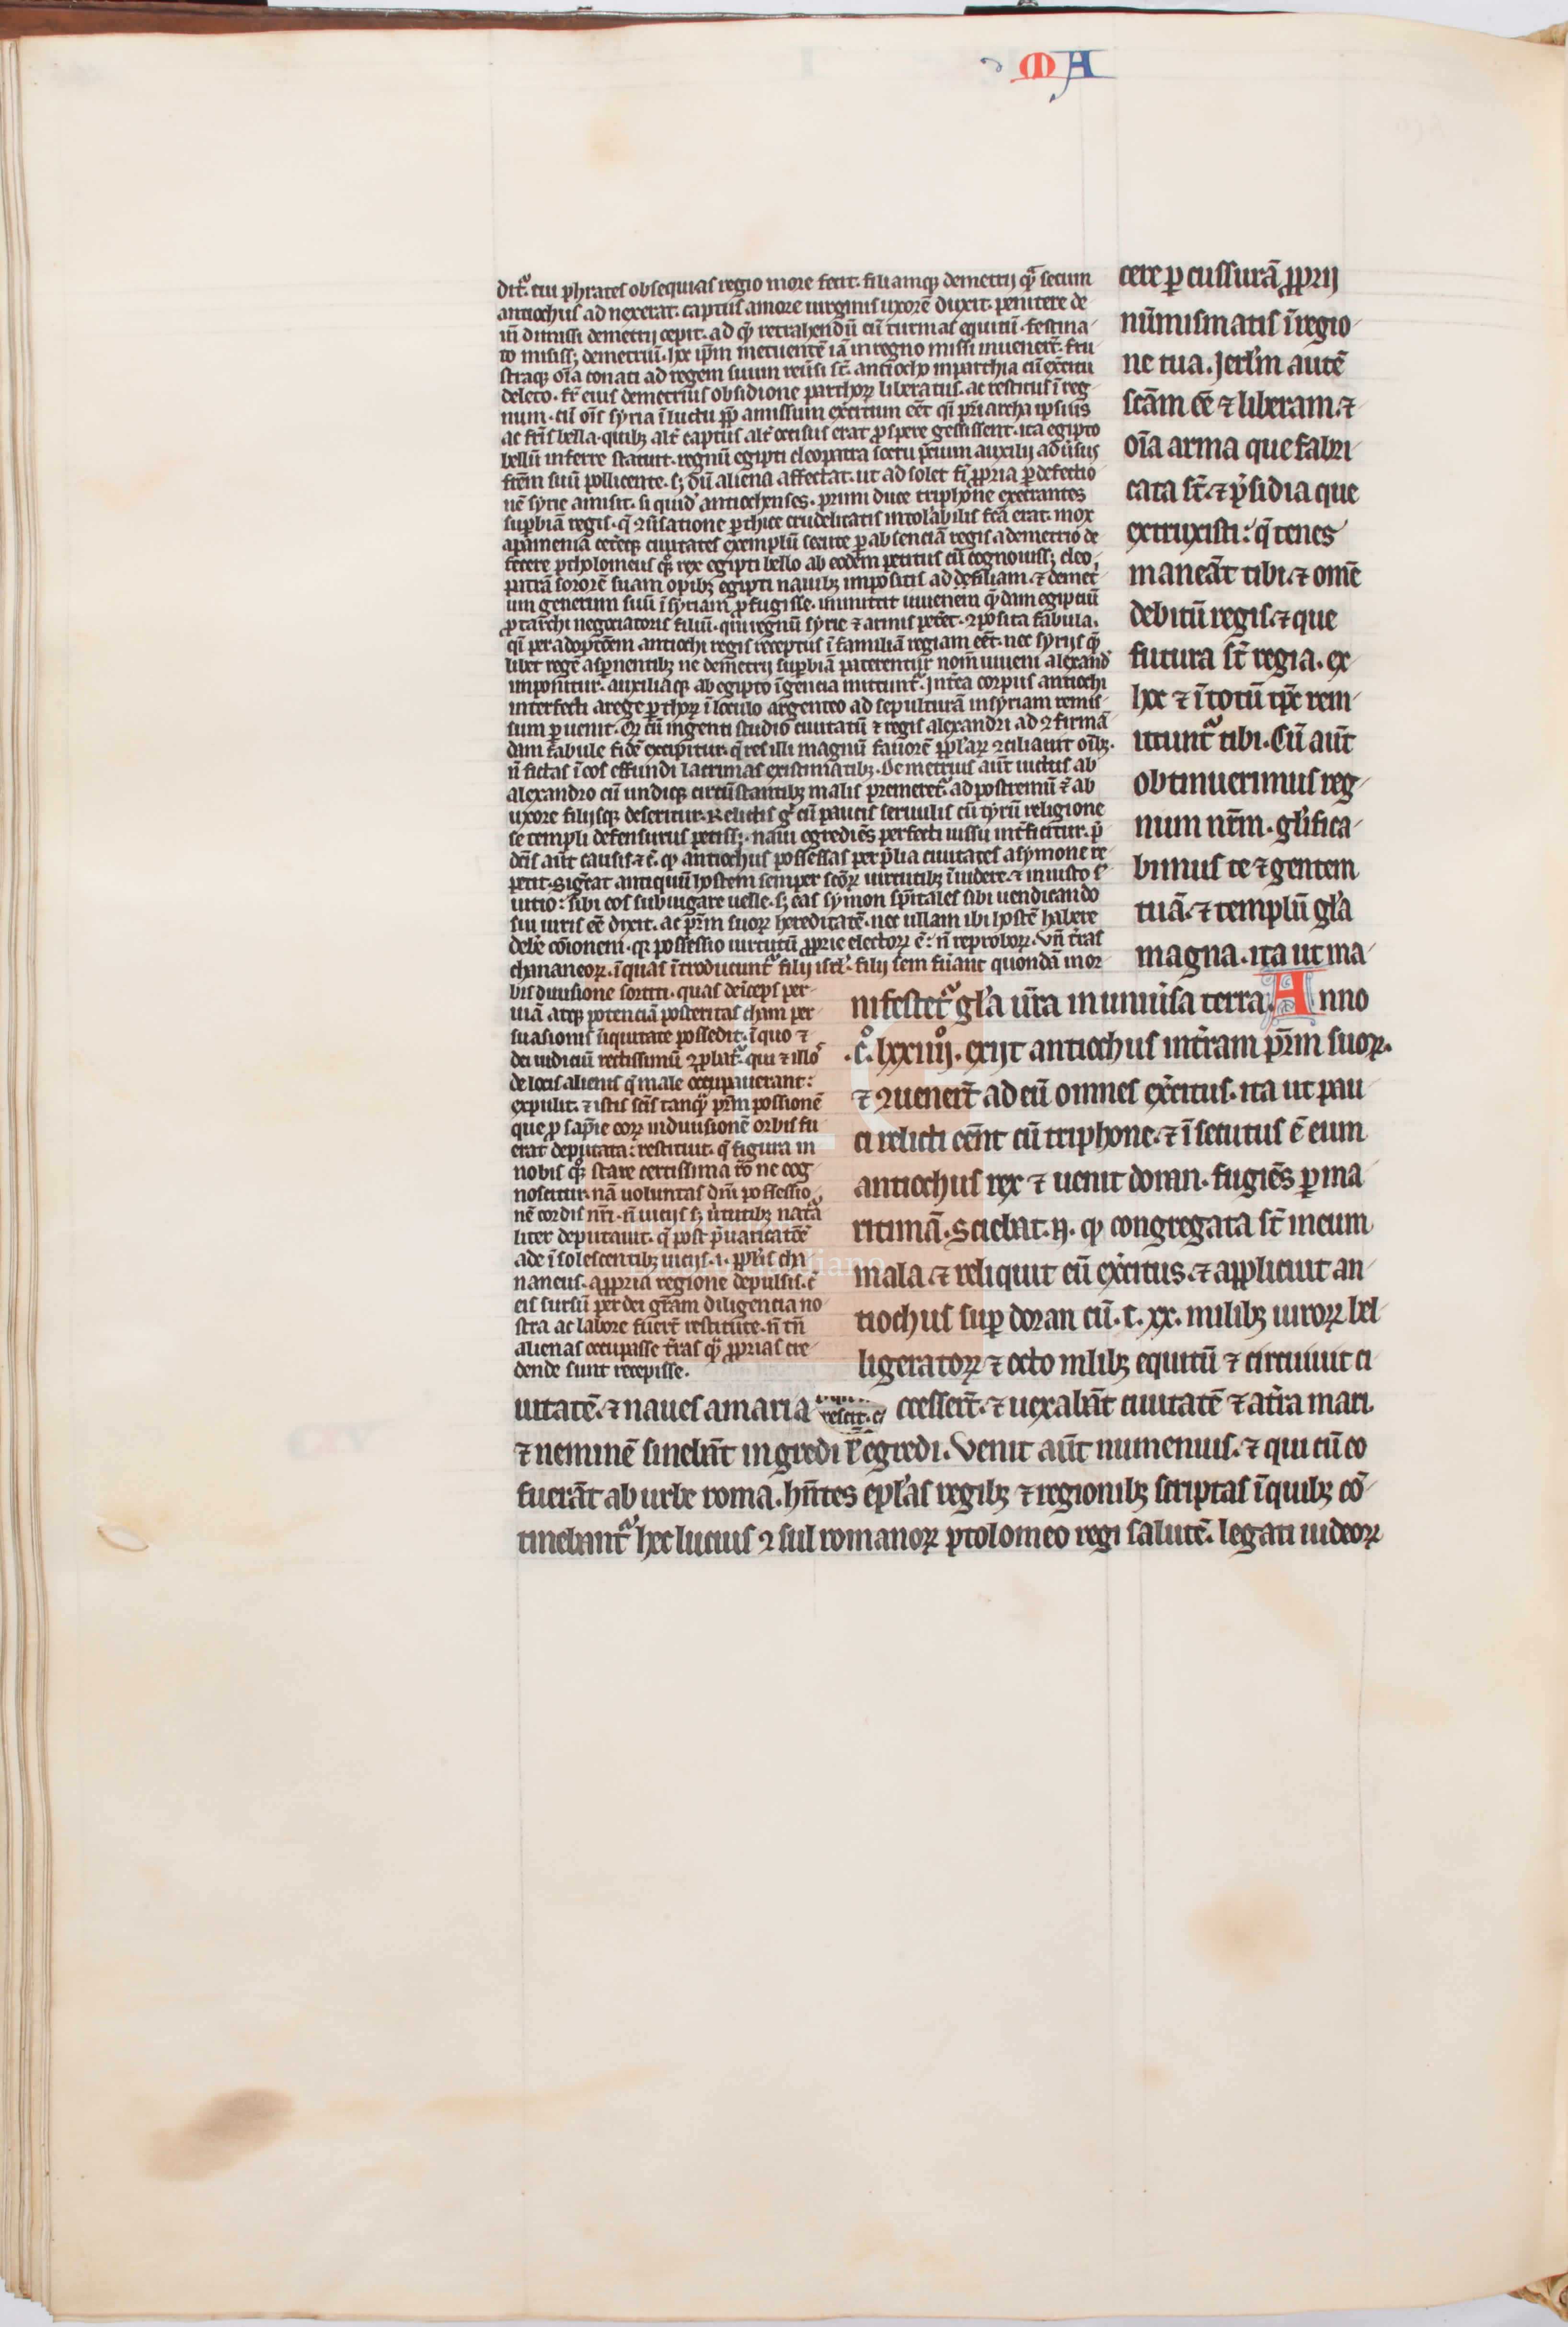 MA
dit᷑. cui phrates obsequias regio more fecit. filiamqꝫ demetrij qᷓ secum
antiochus adnexerat. captus amore uirginis uxorē duxit. penitere de
in̄ dimissi demetrij cepit. ad qͤ retrahendū cū turmas equitū. festina
to misissꝫ demetriū. hoc ip̄m metuentē iā in regno missi inuener̄t. fru
straqꝫ oīa conati ad regem suum reuͥsi st̄. antiocho in parthia cū exc̄itu
deleto. fr̄ eius demetrius obsidione parthoꝝ liberatus. ac restitus ī reg
num. cū oīs syria ī luctu ꝓp̄ amissum exc̄itum eēt qi pr̄iarcha ipsius
ac fr̄is bella. quibꝫ alt᷑ captus alt᷑ occisus erat ꝓspere gessissent. ita egipto
bellū inferre statuit. regnū egipti cleopatra socru p̄cium auxilij aduͥsus
fr̄em suū pollicente. sꝫ dū aliena affectat. ut ad solet fi ꝓpria ꝑ defectio
nē syrie amisit. si quidͤ antiochenses. primi duce triphone execrantes
suꝑbiā regis. q̄ ꝯuͥsatione ꝑthice crudelitatis intolˀabilis fc̄a erat. mox
apameniā cet᷑eqꝫ ciuitates exemplū secute ꝑ absenciā regis a demetrio de
fecere ptholomeus qꝫ rex egipti bello ab eodem petitus cū cognouissꝫ cleo
patrā sororē suam opibꝫ egipti nauibꝫ impositis ad de filiam. ⁊ demet᷑
um generum suū ī syriam ꝓfugisse. immittit iuuenem qͤdam egipciū
ꝓtarchi negociatoris filiū. qui regnū syrie ⁊ armis pet᷑et. ꝯposita fabula.
qi per adopcōem antiochi regis receptus ī familiā regiam eēt. nec syrijs qͤ
libet regē asꝑnentibꝫ ne demetrij suꝑbiā paterentur nom̄ iuueni alexandͤ
imponitur. auxiliaqꝫ ab egipto īgencia mittunt᷑. Int᷑ea corpus antiochi
interfecti a rege ꝑthoꝝ ī loculo argenteo ad sepulturā in syriam remis
sum ꝑuenit. Qͤ cū ingenti studio ciuitatū ⁊ regis alexandri ad ꝯfirmā
dam fabule fidē excipitur. q̄ res illi magnū fauorē ꝓplˀaꝝ ꝯciliauit oībꝫ.
n̄ fictas ī eos effundi lacrimas existimātibꝫ. Demetrius aut̄ uictus ab
alexandro cū undiqꝫ circū stantibꝫ malis premeret᷑ ad postremū ⁊ ab
uxore filijsqꝫ deseritur. Relictis gͥ cū paucis seruulis cū tyrū religione
se templi defensurus petissꝫ. naui egrediēs perfecti iussu int᷑ficitur. p̄
dc̄is aut̄ causis ⁊c̄. qͤ antiochus possessas per p̄lia ciuitates a symone re
petit. Sigt᷑at antiquū hostem semper sc̄oꝝ uirtutibꝫ īuidere. ⁊ in uicto s
uicio: sibi eos subiugare uelle. sꝫ eas symon spr̄itales sibi uendicando
sui iuris eē dixit. ac pr̄m suoꝝ hereditatē. nec ullam ibi hostē habere
debe cōionem. qꝛ possessio uirtutū ꝓprie electoꝝ ē. n̄ reproboꝝ. Vn̄ tr̄as
chananeoꝝ. ī quas ītroducunt᷑ filij isrlˀ. filij sem fuͥant quondā in or
bis diuisione sortiti. quas deīceps per
uiā atqꝫ potenciā posteritas cham per
suasionis īiquitate possedit. ī quo ⁊
dei iudiciū rectissimū ꝯꝓbat᷑. qui ⁊ illoˢ
de locis alienis q̄ male occupauerant:
expulit. ⁊ istis sc̄is tanqͣ pr̄m possionē
que ꝓ sap̄ie eoꝝ in diuisionē orbis fu
erat deputata: restituit. q̄ figura in
nobis qꝫ stare certissima rōne cog
noscitur. nā uoluntas dn̄i possessio
nē cordis nr̄i. n̄ uicijs sꝫ uͥtutibꝫ natā
liter deputauit. q̄ post p̄uaricatōē
ade īsolescentibꝫ uicijs. i. ꝓplˀis cha
naneis. a ꝓpria regione depulsis. t᷑
eis sursū per dei gr̄am diligencia no
stra ac labore fuer̄t restitute. n̄ tn̄
alienas occupasse tr̄as qͣ ꝓprias cre
dende sunt recepisse.
cere ꝑcussurā ꝓprij
nūmismatis ī regio
ne tua. Jerlˀm autē
scām eē ⁊ liberam. ⁊
oīa arma que fabri
cata st̄. ⁊ p̄sidia que
extruxisti: q̄ tenes
maneāt tibi. ⁊ omē
debitū regis. ⁊ que
futura st̄ regia. ex
hoc ⁊ ī totū tp̄e rem
ittunt᷑ tibi. Cū aut̄
obtinuerimus reg
num nr̄m. glˀifica
bimus te ⁊ gentem
tuā. ⁊ templū glˀa
magna. ita ut ma
nifestet᷑ glˀa ur̄a in uniuͥsa terra. Anno
.cͦ. lxxiiijͦ. exijt antiochus in tr̄am pr̄m suoꝝ.
⁊ ꝯuener̄t ad eū omnes exc̄itus. ita ut pau
ci relicti eēnt cū triphone. ⁊ īsecutus ē eum
antiochus rex ⁊ uenit doran. fugiēs ꝑ ma
ritimā. Sciebat. N̄. qͤ congregata st̄ in eum
mala. ⁊ reliquit eū exc̄itus. ⁊ applicuit an
tiochus suꝑ doran cū. c. xx. milibꝫ uiroꝝ bel
ligeratoꝝ ⁊ octo mlibꝫ equitū ⁊ circuiuit ci
uitatē. ⁊ naues a mari a cesser̄t. ⁊ uexabāt ciuitatē ⁊ a tr̄a mari.
⁊ neminē sinebāt ingredi ł egredi. Venit aūt numenius. ⁊ qui cū eo
fuerāt ab urbe roma. hn̄tes eplˀas regibꝫ ⁊ regionibꝫ scriptas ī quibꝫ cō
tinebant᷑ hec lucius ꝯsul romanoꝝ ptolomeo regi salutē. legati iudeoꝝ